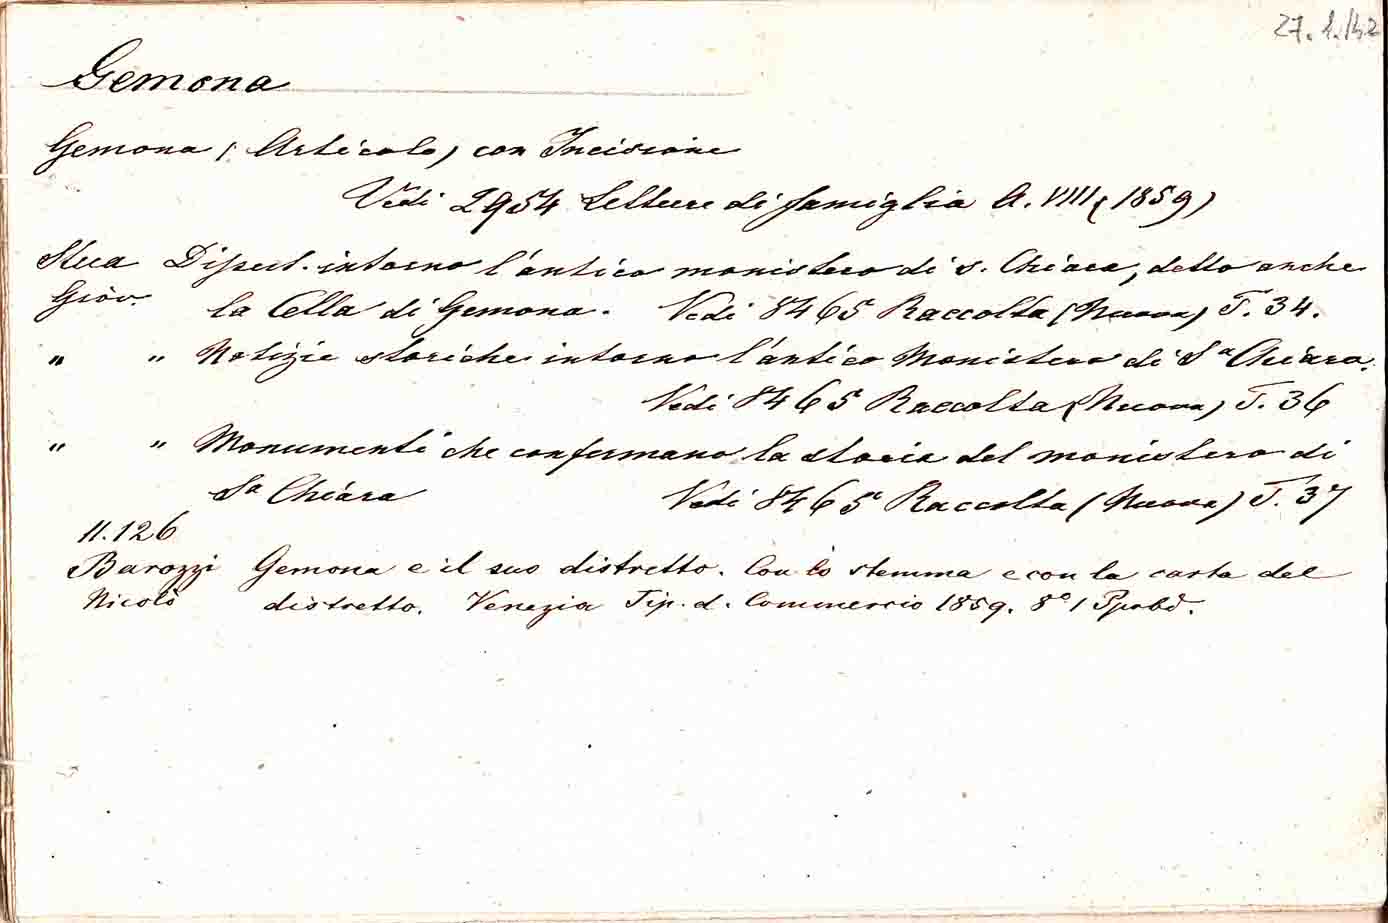 27.1.142
Gemona
Gemona (Articolo) con Incisione
Vedi 2954 Letture di famiglia A. VIII (1859)
Stua Dissert. intorno l'antico monistero di S. Chiara, detto anche
Giov. la Cella di Gemona. Vedi 8465 Raccolta (Nuova) T. 34.
" " Notizie storiche intorno l'antico Monistero di Sa Chiara.
Vedi 8465 Raccolta (Nuova) T. 36
" " Monumenti che confermano la storia del monistero di
Sa Chiara Vedi 8465 Raccolta (Nuova) T. 37
11.126
Barozzi Gemona e il suo distretto. Con lo stemma e con la carta del
Nicolò distretto. Venezia Tip. d. Commercio 1859. 8° 1